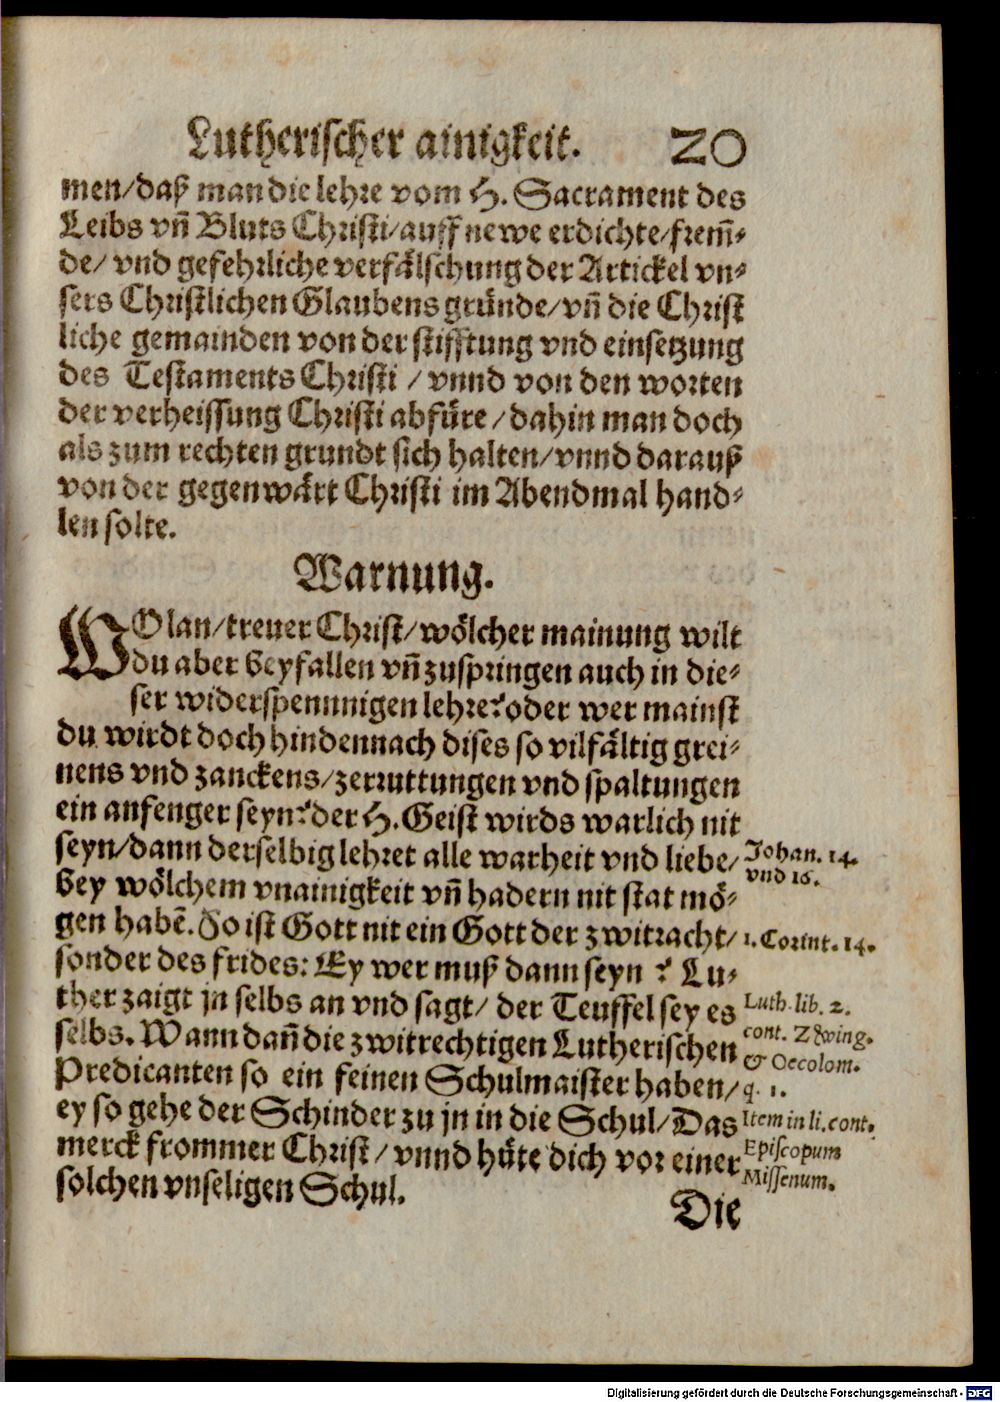 Lutherischer ainigkeit. 20
men/daß man die lehre vom H. Sacrament des
Leibs vñ Bluts Christi/auff newe erdichte/frem̃-
de/ vnd gefehrliche verfälschung der Artickel vn-
sers Christlichen Glaubens gründe/vñ die Christ
liche gemainden von der stifftung vnd einsetzung
des Testaments Christi / vnnd von den worten
der verheissung Christi abfüre/dahin man doch
als zum rechten grundt sich halten/vnnd darauß
von der gegenwärt Christi im Abendmal hand-
len solte.
Warnung.
WOlan/treuer Christ/wölcher mainung wilt
du aber beyfallen vñ zuspringen auch in die-
ser widerspennnigen lehre? oder wer mainst
du wirdt doch hindennach dises so vilfältig grei-
nens vnd zanckens/zerruttungen vnd spaltungen
ein anfenger seyn? der H. Geist wirds warlich nit
seyn/dann derselbig lehret alle warheit vnd liebe/
Johan. 14.
vnd 16.
bey wölchem vnainigkeit vñ hadern nit stat mö-
gen habẽ. So ist Gott nit ein Gott der zwitracht/
1. Corint. 14.
sonder des frides: Ey wer muß dann seyn ? Lu-
ther zaigt jn selbs an vnd sagt/ der Teuffel sey es
Luth. lib. 2.
selbs. Wann dañ die zwitrechtigen Lutherischen
cont. Zwing.
& Oecolom.
Predicanten so ein feinen Schulmaister haben/
q. 1.
ey so gehe der Schinder zu jn in die Schul/Das
Item in li. cont.
merck frommer Christ/ vnnd hüte dich vor einer
Episcopum
solchen vnseligen Schul.
Missenum.
Die
Digitalisierung gefördert durch die Deutsche Forschungsgemeinschaft - DFG